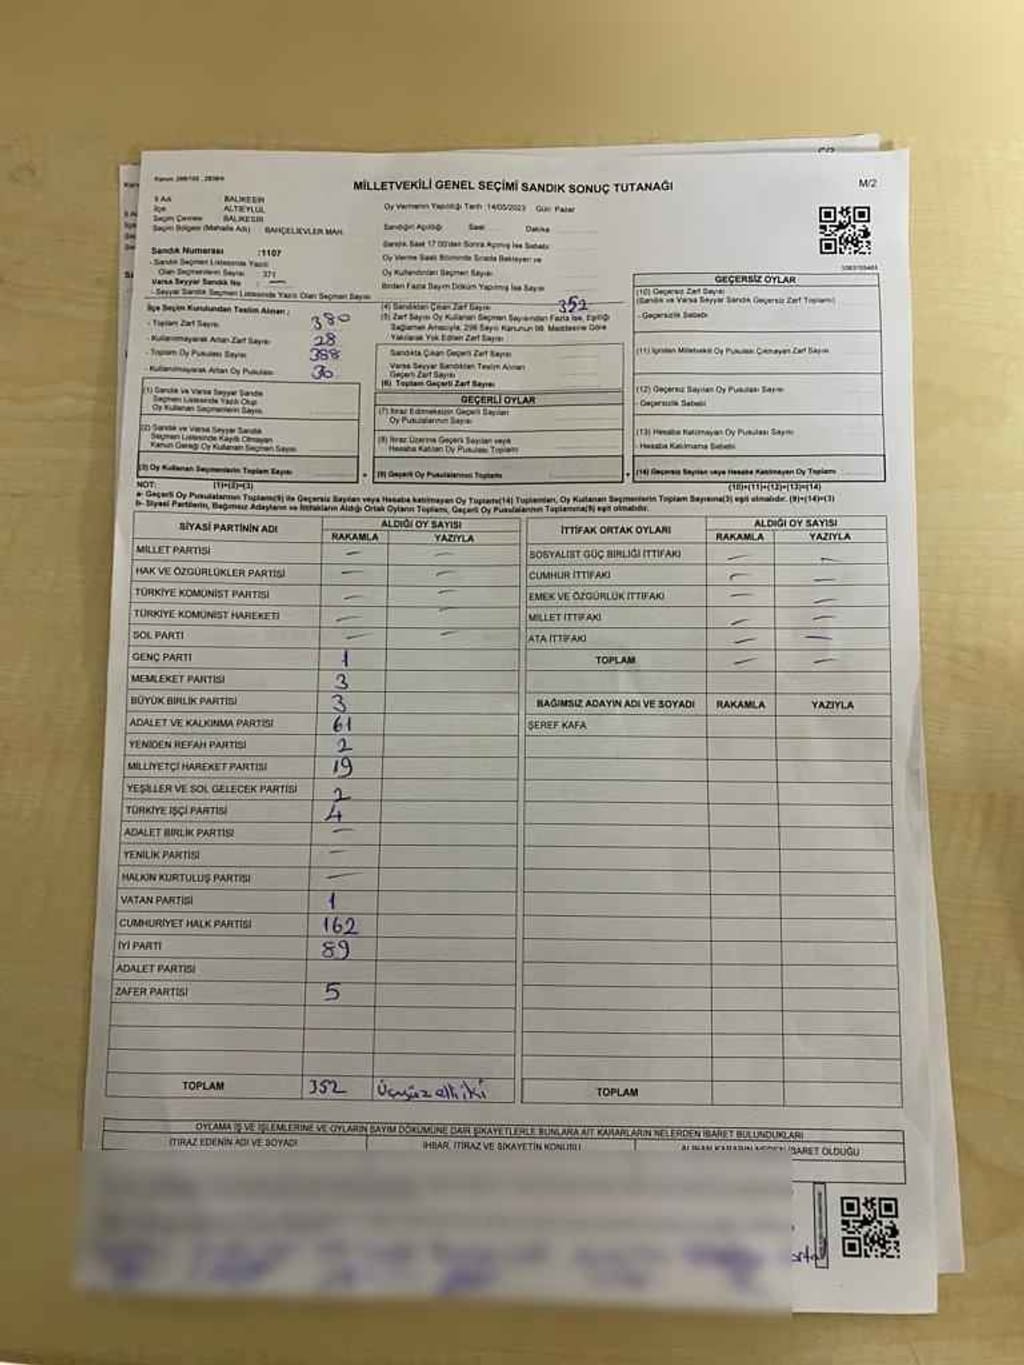 Kanun
MİLLETVEKİLİ GENEL SEÇİMİ SANDIK SONUÇ TUTANAĞI
M/2
İl Adı BALIKESİR
İlçe ALTIEYLÜL
Seçim Çevresi BALIKESİR
Seçim Bölgesi (Mahalle Adı) : BAHÇELİEVLER MAH.
Sandık Numarası :1107
- Sandık Seçmen Listesinde Yazılı
Olan Seçmenlerin Sayısı : 371
Varsa Seyyar Sandık No : —
- Seyyar Sandık Seçmen Listesinde Yazılı Olan Seçmen Sayısı
İlçe Seçim Kurulundan Teslim Alınan ;
- Toplam Zarf Sayısı 380
- Kullanılmayarak Artan Zarf Sayısı 28
- Toplam Oy Pusulası Sayısı 388
- Kullanılmayarak Artan Oy Pusulası 36
(1) Sandık ve Varsa Seyyar Sandık
Seçmen Listesinde Yazılı Olup
Oy Kullanan Seçmenlerin Sayısı
(2) Sandık ve Varsa Seyyar Sandık
Seçmen Listesinde Kayıtlı Olmayan
Kanun Gereği Oy Kullanan Seçmen Sayısı
(3) Oy Kullanan Seçmenlerin Toplam Sayısı
(1)+(2)=(3)
Oy Vermenin Yapıldığı Tarih :14/05/2023 Gün: Pazar
Sandığın Açıldığı Saat Dakika
Sandık Saat 17:00'den Sonra Açılmış İse Sebebi
Oy Verme Saati Bitiminde Sırada Bekleyen ve
Oy Kullandırılan Seçmen Sayısı
Birden Fazla Sayım Döküm Yapılmış İse Sayısı
(4) Sandıktan Çıkan Zarf Sayısı 352
(5) Zarf Sayısı Oy Kullanan Seçmen Sayısından Fazla İse, Eşitliği
Sağlamak Amacıyla, 298 Sayılı Kanunun 98. Maddesine Göre
Yakılarak Yok Edilen Zarf Sayısı
Sandıkta Çıkan Geçerli Zarf Sayısı
Varsa Seyyar Sandıktan Teslim Alınan
Geçerli Zarf Sayısı
(6) Toplam Geçerli Zarf Sayısı
GEÇERLİ OYLAR
(7) İtiraz Edilmeksizin Geçerli Sayılan
Oy Pusulalarının Sayısı
(8) İtiraz Üzerine Geçerli Sayılan veya
Hesaba Katılan Oy Pusulası Toplamı
(9) Geçerli Oy Pusulalarının Toplamı
GEÇERSİZ OYLAR
(10) Geçersiz Zarf Sayısı
(Sandık ve Varsa Seyyar Sandık Geçersiz Zarf Toplamı)
- Geçersizlik Sebebi
(11) İçinden Milletvekili Oy Pusulası Çıkmayan Zarf Sayısı
(12) Geçersiz Sayılan Oy Pusulası Sayısı
- Geçersizlik Sebebi
(13) Hesaba Katılmayan Oy Pusulası Sayısı
- Hesaba Katılmama Sebebi
(14) Geçersiz Sayılan veya Hesaba Katılmayan Oy Toplamı
(10)+(11)+(12)+(13)=(14)
NOT:
a- Geçerli Oy Pusulalarının Toplamı(9) ile Geçersiz Sayılan veya Hesaba katılmayan Oy Toplamı(14) Toplamları, Oy Kullanan Seçmenlerin Toplam Sayısına(3) eşit olmalıdır. (9)+(14)=(3)
b- Siyasi Partilerin, Bağımsız Adayların ve İttifakların Aldığı Ortak Oyların Toplamı, Geçerli Oy Pusulalarının Toplamına(9) eşit olmalıdır.
SİYASİ PARTİNİN ADI ALDIĞI OY SAYISI
RAKAMLA YAZIYLA
MİLLET PARTİSİ — —
HAK VE ÖZGÜRLÜKLER PARTİSİ — —
TÜRKİYE KOMÜNİST PARTİSİ — —
TÜRKİYE KOMÜNİST HAREKETİ — —
SOL PARTİ — —
GENÇ PARTİ 1
MEMLEKET PARTİSİ 3
BÜYÜK BİRLİK PARTİSİ 3
ADALET VE KALKINMA PARTİSİ 61
YENİDEN REFAH PARTİSİ 2
MİLLİYETÇİ HAREKET PARTİSİ 19
YEŞİLLER VE SOL GELECEK PARTİSİ 2
TÜRKİYE İŞÇİ PARTİSİ 4
ADALET BİRLİK PARTİSİ —
YENİLİK PARTİSİ —
HALKIN KURTULUŞ PARTİSİ —
VATAN PARTİSİ 1
CUMHURİYET HALK PARTİSİ 162
İYİ PARTİ 89
ADALET PARTİSİ
ZAFER PARTİSİ 5
TOPLAM 352 Üçyüzelliiki
İTTİFAK ORTAK OYLARI ALDIĞI OY SAYISI
RAKAMLA YAZIYLA
SOSYALİST GÜÇ BİRLİĞİ İTTİFAKI — —
CUMHUR İTTİFAKI — —
EMEK VE ÖZGÜRLÜK İTTİFAKI — —
MİLLET İTTİFAKI — —
ATA İTTİFAKI — —
TOPLAM — —
BAĞIMSIZ ADAYIN ADI VE SOYADI RAKAMLA YAZIYLA
ŞEREF KAFA
TOPLAM
OYLAMA İŞ VE İŞLEMLERİNE VE OYLARIN SAYIM DÖKÜMÜNE DAİR ŞİKAYETLERLE BUNLARA AİT KARARLARIN NELERDEN İBARET BULUNDUKLARI
İTİRAZ EDENİN ADI VE SOYADI
İHBAR, İTİRAZ VE ŞİKAYETİN KONUSU
ALINAN KARARIN NEDEN İBARET OLDUĞU